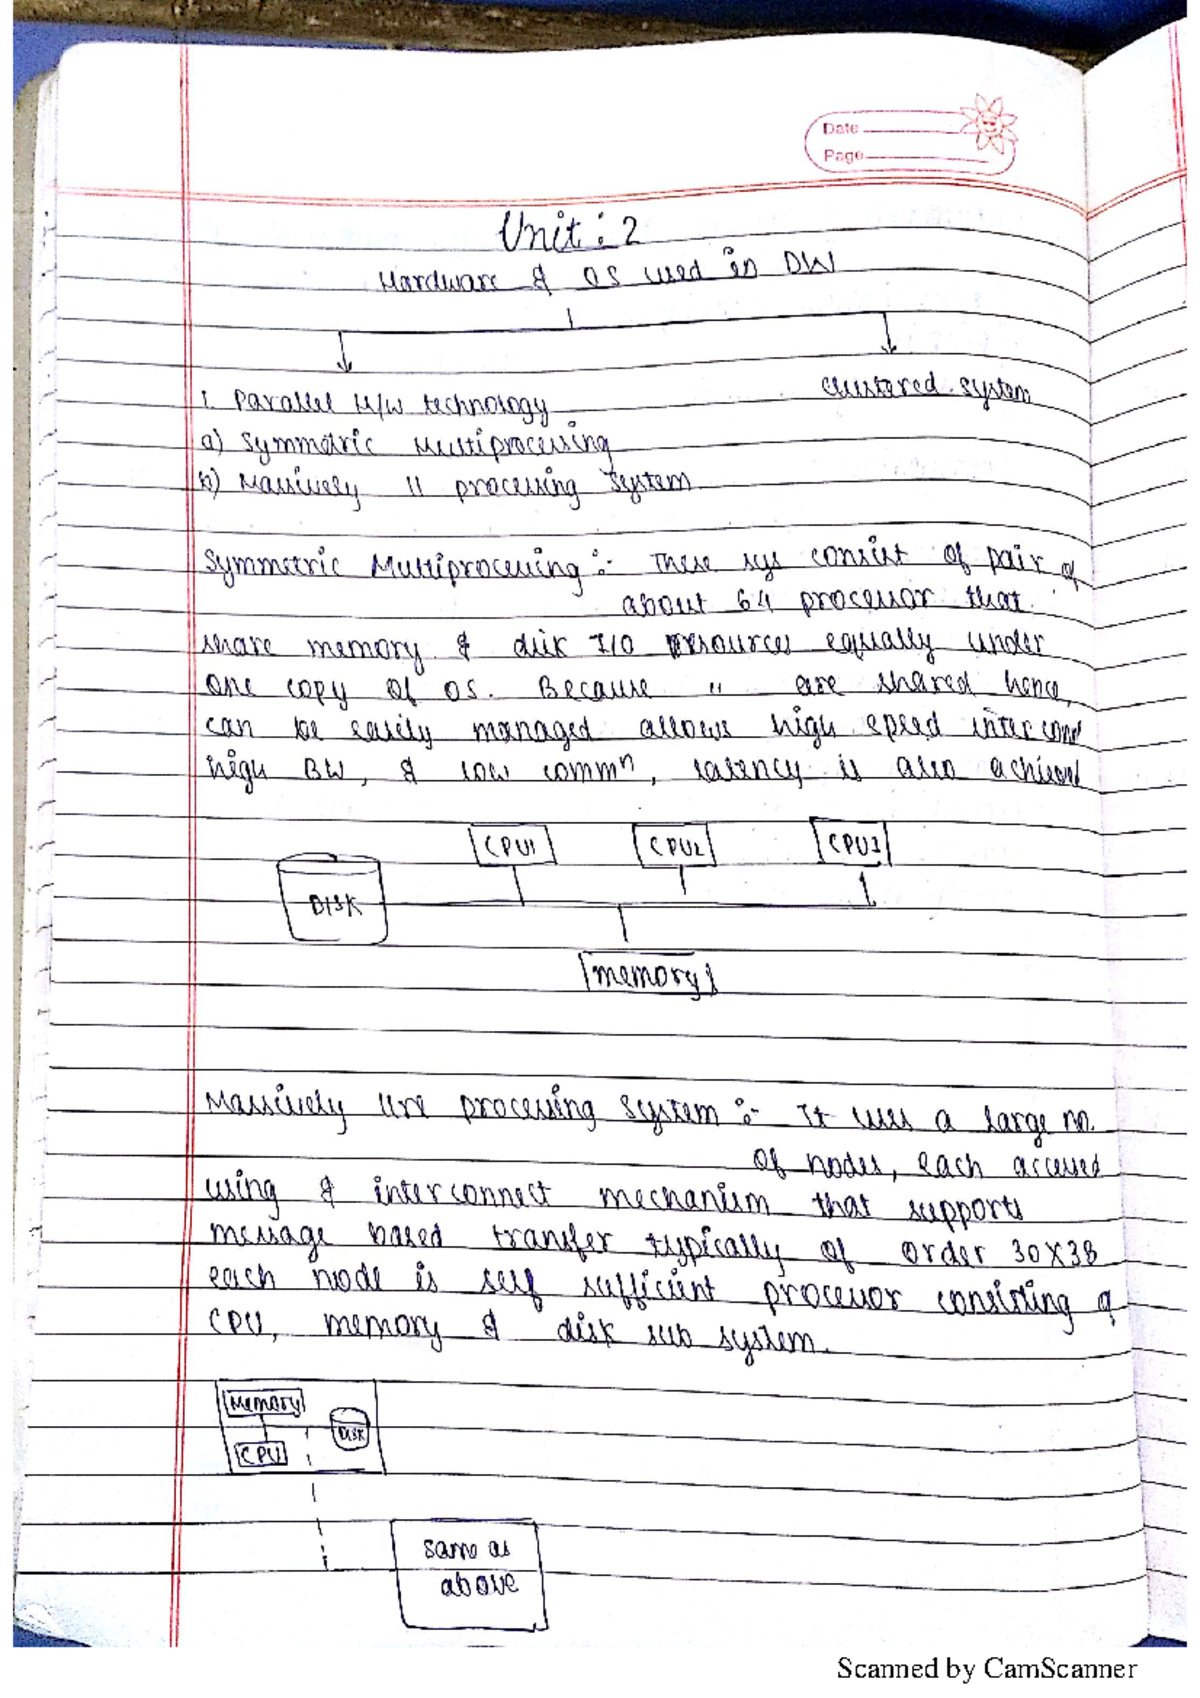 Date
Page
Unit : 2
Hardware & OS used in DW
1. Parallel H/W technology
clustered system
a) Symmetric Multiprocessing
b) Massively 11 processing system
Symmetric Multiprocessing :- These sys consist of pair of
about 64 processor that
share memory & disk I/O resources equally under
one copy of OS. Because " are shared hence,
can be easily managed allows high speed inter conn
high BW, & low commⁿ, latency is also achieved
CPU1 CPU2 CPU3
DISK
memory
Massively processing system :- It uses a large no.
of nodes, each accessed
using & interconnect mechanism that supports
message based transfer typically of order 30X38
each node is self sufficient processor consisting of
CPU, memory & disk sub system.
Memory
DISK
CPU
same as
above
Scanned by CamScanner